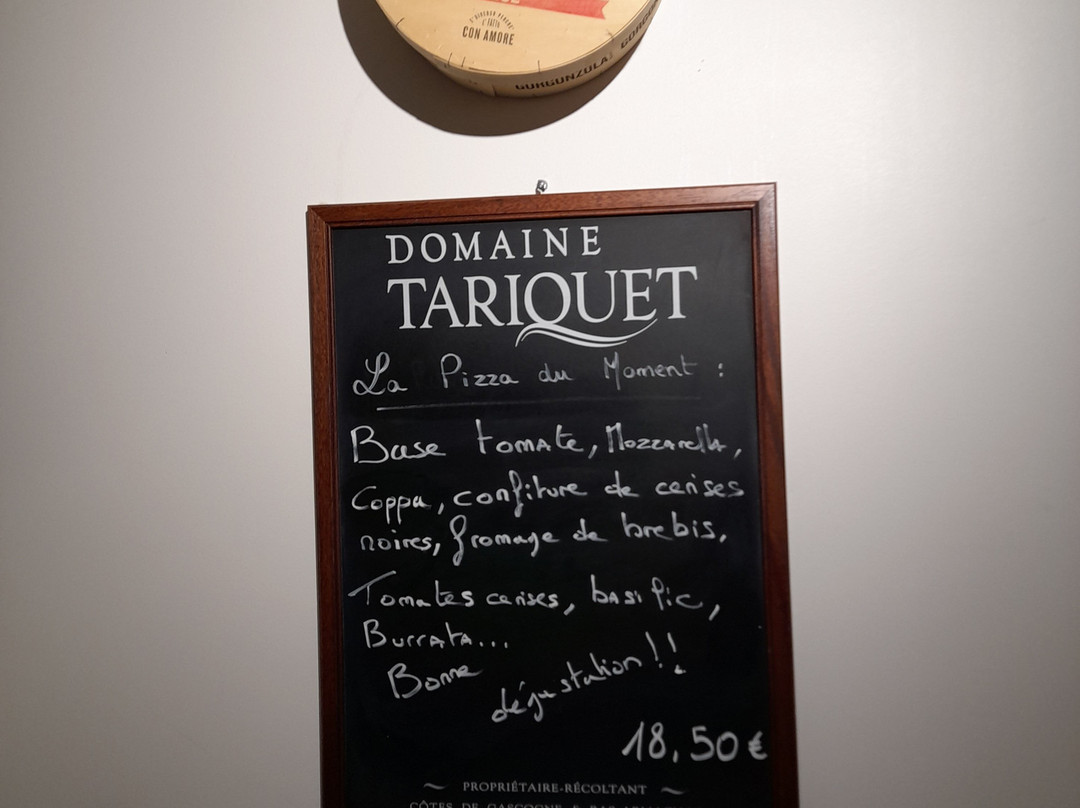 CON AMORE
GORGONZOLA
DOMAINE
TARIQUET
La Pizza du Moment :
Base tomate, Mozzarella,
Coppa, confiture de cerises
noires, fromage de brebis,
Tomates cerises, basilic,
Burrata...
Bonne
dégustation !!
18,50€
PROPRIÉTAIRE-RÉCOLTANT
CÔTES DE GASCOGNE